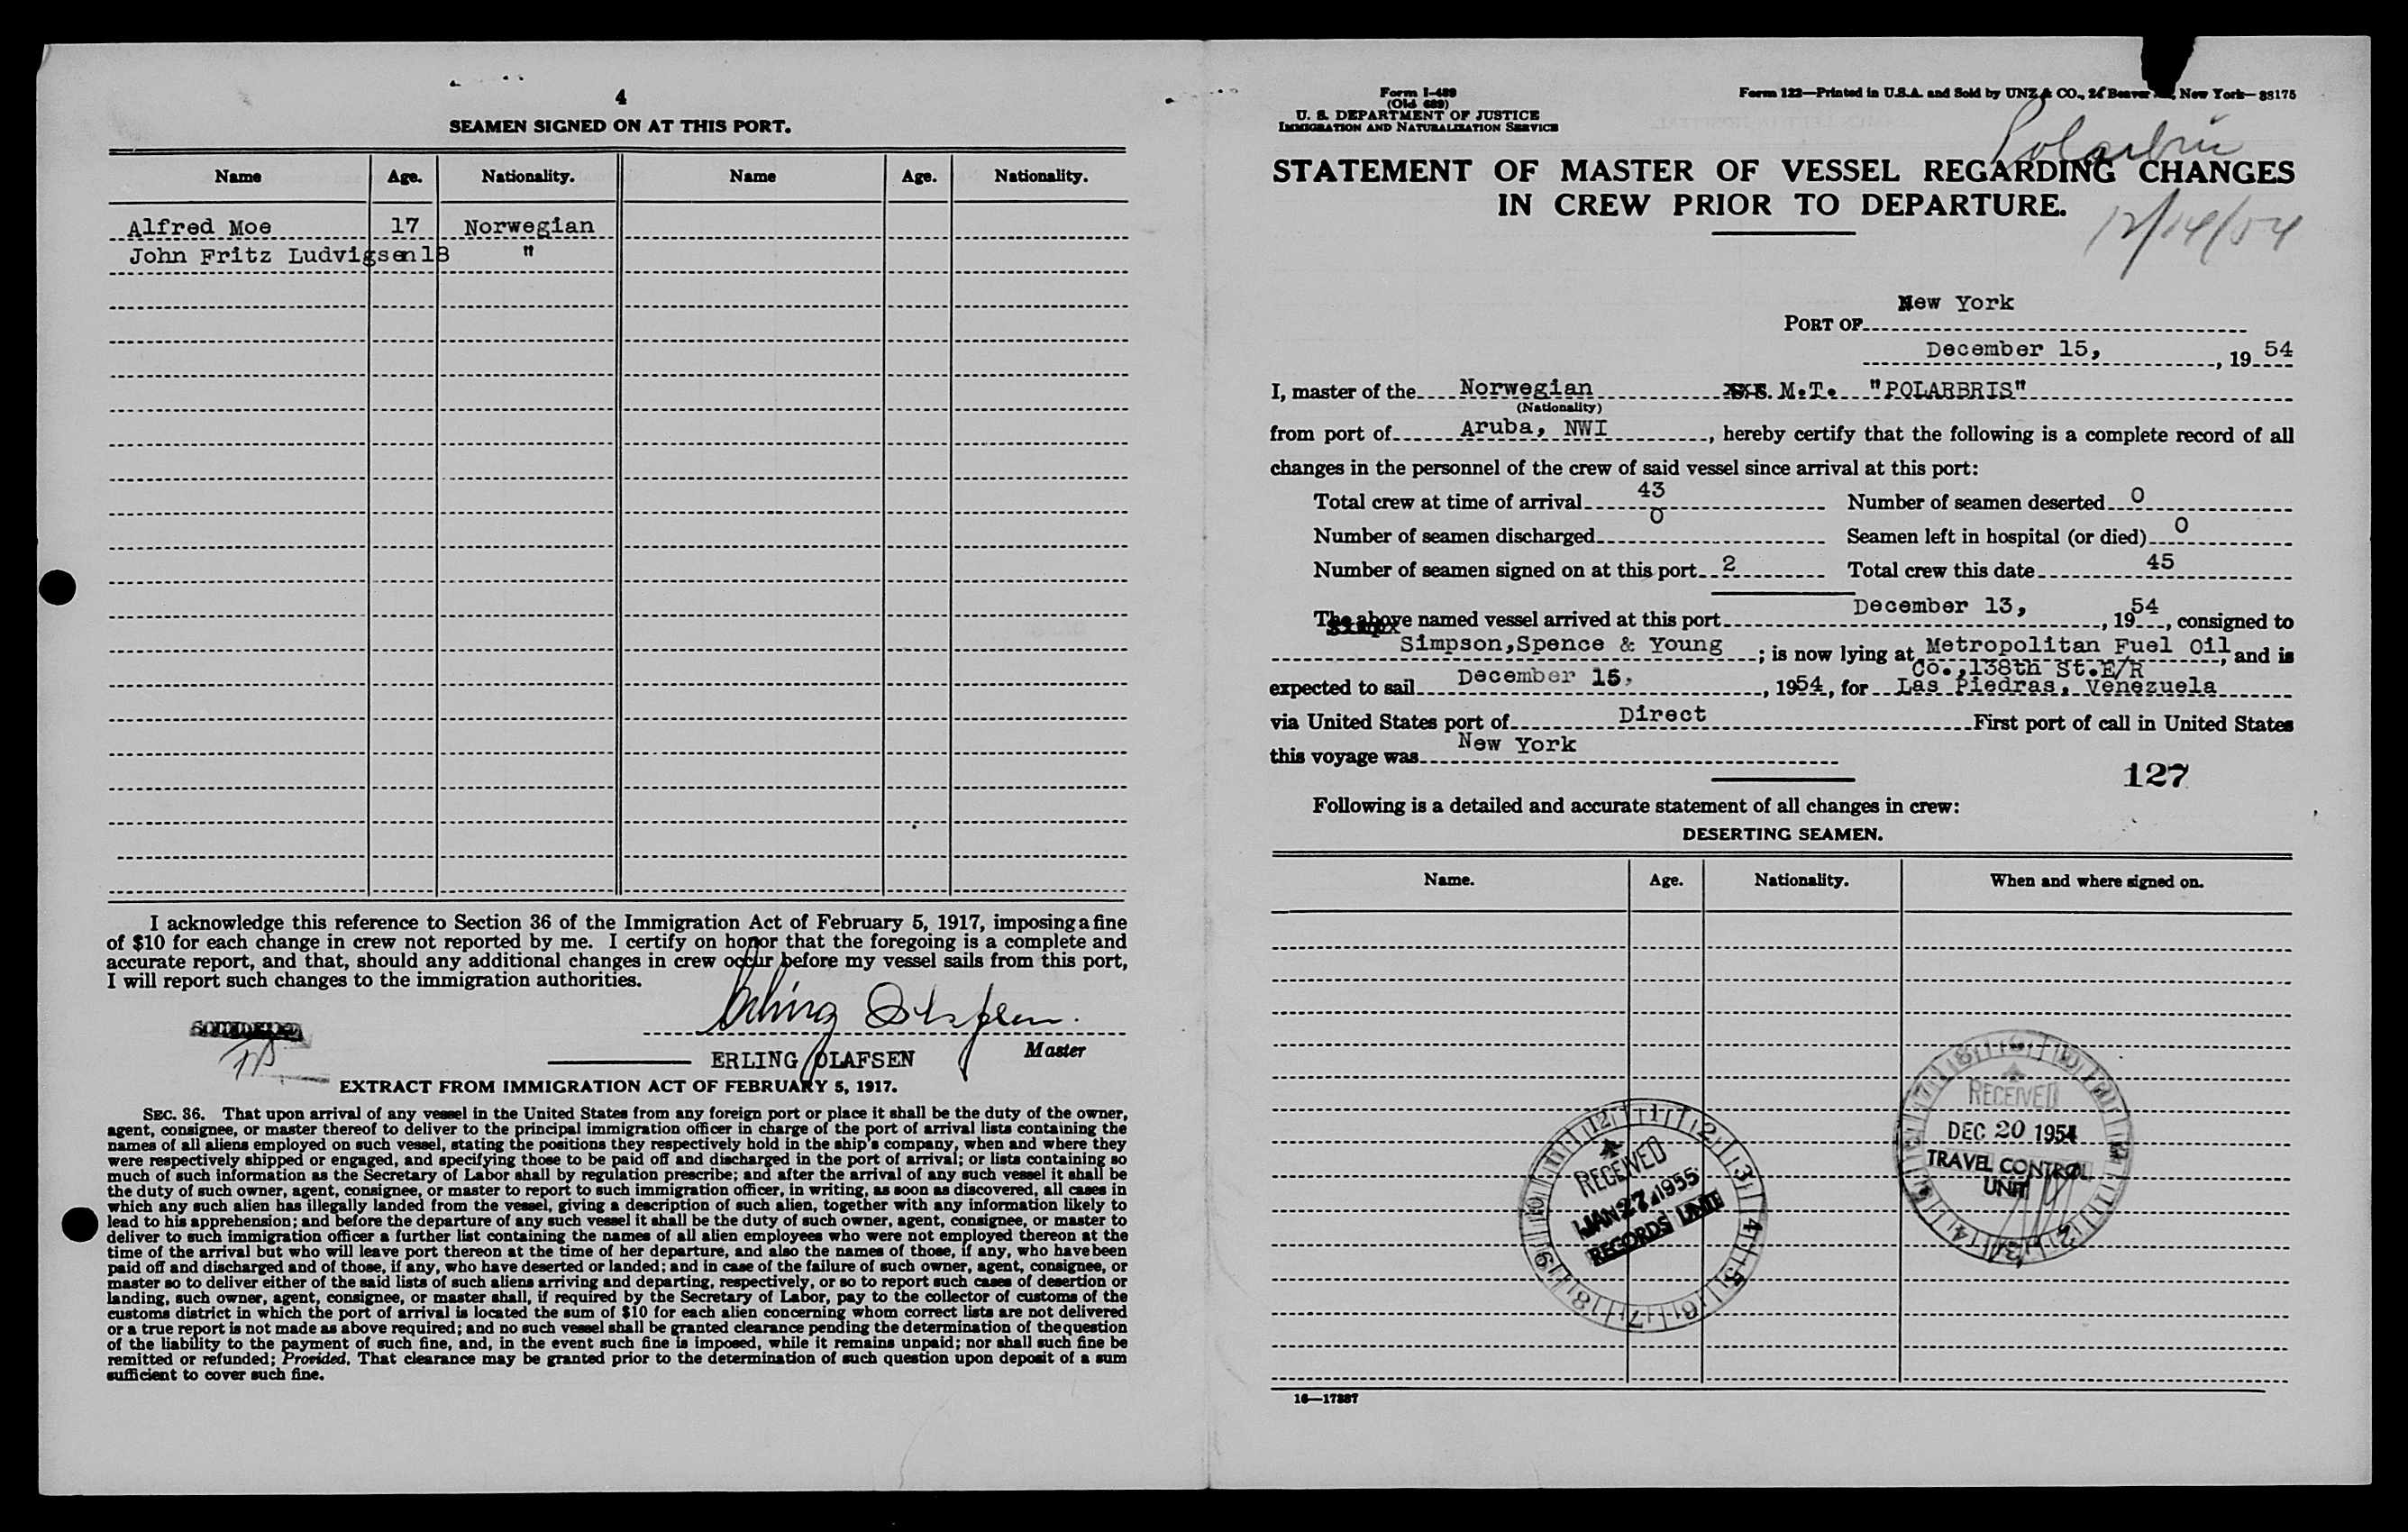 4
SEAMEN SIGNED ON AT THIS PORT.
Name Age. Nationality. Name Age. Nationality.
Alfred Moe 17 Norwegian
John Fritz Ludvigsen 18 "
I acknowledge this reference to Section 36 of the Immigration Act of February 5, 1917, imposing a fine
of $10 for each change in crew not reported by me. I certify on honor that the foregoing is a complete and
accurate report, and that, should any additional changes in crew occur before my vessel sails from this port,
I will report such changes to the immigration authorities.
Erling Olafsen
ERLING OLAFSEN Master
EXTRACT FROM IMMIGRATION ACT OF FEBRUARY 5, 1917.
SEC. 36. That upon arrival of any vessel in the United States from any foreign port or place it shall be the duty of the owner,
agent, consignee, or master thereof to deliver to the principal immigration officer in charge of the port of arrival lists containing the
names of all aliens employed on such vessel, stating the positions they respectively hold in the ship's company, when and where they
were respectively shipped or engaged, and specifying those to be paid off and discharged in the port of arrival; or lists containing so
much of such information as the Secretary of Labor shall by regulation prescribe; and after the arrival of any such vessel it shall be
the duty of such owner, agent, consignee, or master to report to such immigration officer, in writing, as soon as discovered, all cases in
which any such alien has illegally landed from the vessel, giving a description of such alien, together with any information likely to
lead to his apprehension; and before the departure of any such vessel it shall be the duty of such owner, agent, consignee, or master to
deliver to such immigration officer a further list containing the names of all alien employees who were not employed thereon at the
time of the arrival but who will leave port thereon at the time of her departure, and also the names of those, if any, who have been
paid off and discharged and of those, if any, who have deserted or landed; and in case of the failure of such owner, agent, consignee, or
master so to deliver either of the said lists of such aliens arriving and departing, respectively, or so to report such cases of desertion or
landing, such owner, agent, consignee, or master shall, if required by the Secretary of Labor, pay to the collector of customs of the
customs district in which the port of arrival is located the sum of $10 for each alien concerning whom correct lists are not delivered
or a true report is not made as above required; and no such vessel shall be granted clearance pending the determination of the question
of the liability to the payment of such fine, and, in the event such fine is imposed, while it remains unpaid; nor shall such fine be
remitted or refunded; Provided, That clearance may be granted prior to the determination of such question upon deposit of a sum
sufficient to cover such fine.
Form I-489
(Old 689)
U. S. DEPARTMENT OF JUSTICE
IMMIGRATION AND NATURALIZATION SERVICE
Form 122—Printed in U.S.A. and Sold by UNZ & CO., 24 Beaver New York—38175
Polarbris
STATEMENT OF MASTER OF VESSEL REGARDING CHANGES
IN CREW PRIOR TO DEPARTURE.
12/14/54
PORT OF New York
December 15, , 19 54
I, master of the Norwegian S.S. M.T. "POLARBRIS"
(Nationality)
from port of Aruba, NWI , hereby certify that the following is a complete record of all
changes in the personnel of the crew of said vessel since arrival at this port:
Total crew at time of arrival 43 Number of seamen deserted 0
Number of seamen discharged 0 Seamen left in hospital (or died) 0
Number of seamen signed on at this port 2 Total crew this date 45
The above named vessel arrived at this port December 13, , 19 54, consigned to
Simpson, Spence & Young ; is now lying at Metropolitan Fuel Oil , and is
Co., 138th St. E/R
expected to sail December 15, , 1954, for Las Piedras, Venezuela
via United States port of Direct First port of call in United States
this voyage was New York
127
Following is a detailed and accurate statement of all changes in crew:
DESERTING SEAMEN.
Name. Age. Nationality. When and where signed on.
RECEIVED
DEC 20 1954
TRAVEL CONTROL
UNIT
RECEIVED
JAN 27 1955
RECORDS UNIT
16—17887